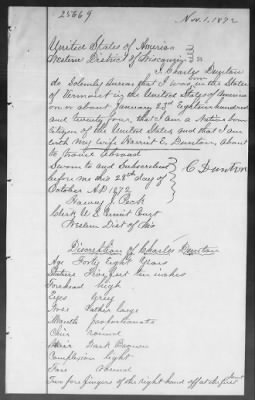 25669
Nov. 1, 1872
United States of America
Western District of Wisconsin } SS
I Charles Dunton
do Solemnly Swear that I was born in the State
of Vermont in the United States of America
on or about January 23rd Eighteen hundred
and twenty four, that I am a Native born
Citizen of the United States and that I am
with my wife Harriet E. Dunton, about
to travel abroad
Sworn to and Subscribed
before me this 28th day of
October AD 1872
C Dunton
Harvey J. Peck
Clerk U S Circuit Court
Western Dist of Wis
Discription of Charles Dunton
Age Forty Eight Years
Stature Five feet ten inches
Forehead high
Eyes Grey
Nose Rather large
Mouth proportionate
Chin round
Hair Dark Brown
Complexion light
Face round
Two fore fingers of the right hand off at the first joint